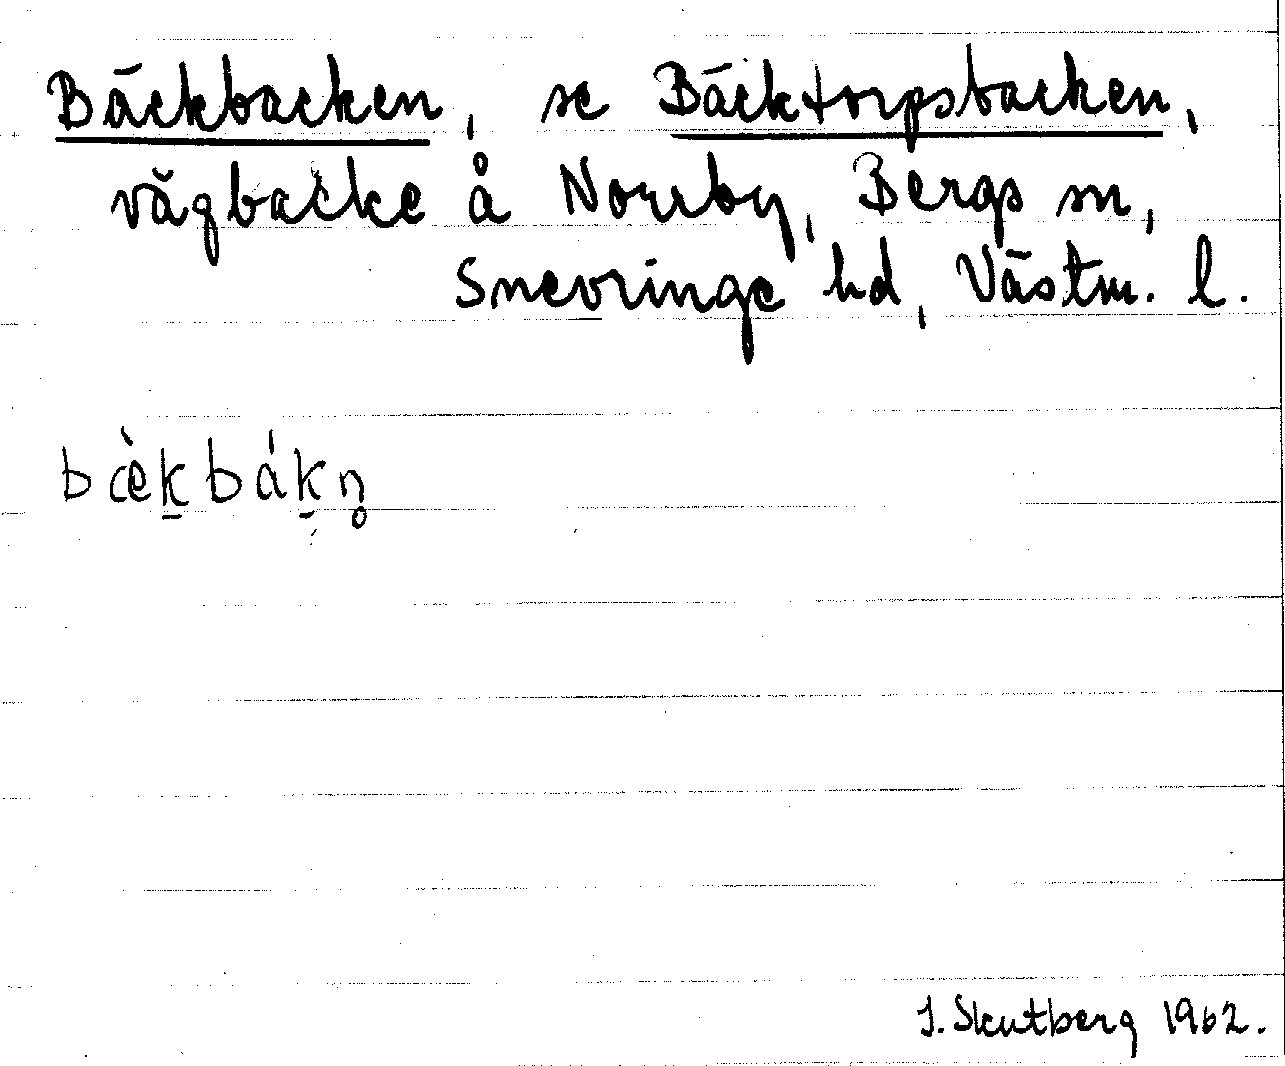 Bäckbacken, se Bäcktorpsbacken,
vägbacke å Norrby, Bergs sn,
Snevringe hd, Västm. l.
bæ̀k̠bák̠n̥
I. Skutberg 1962.